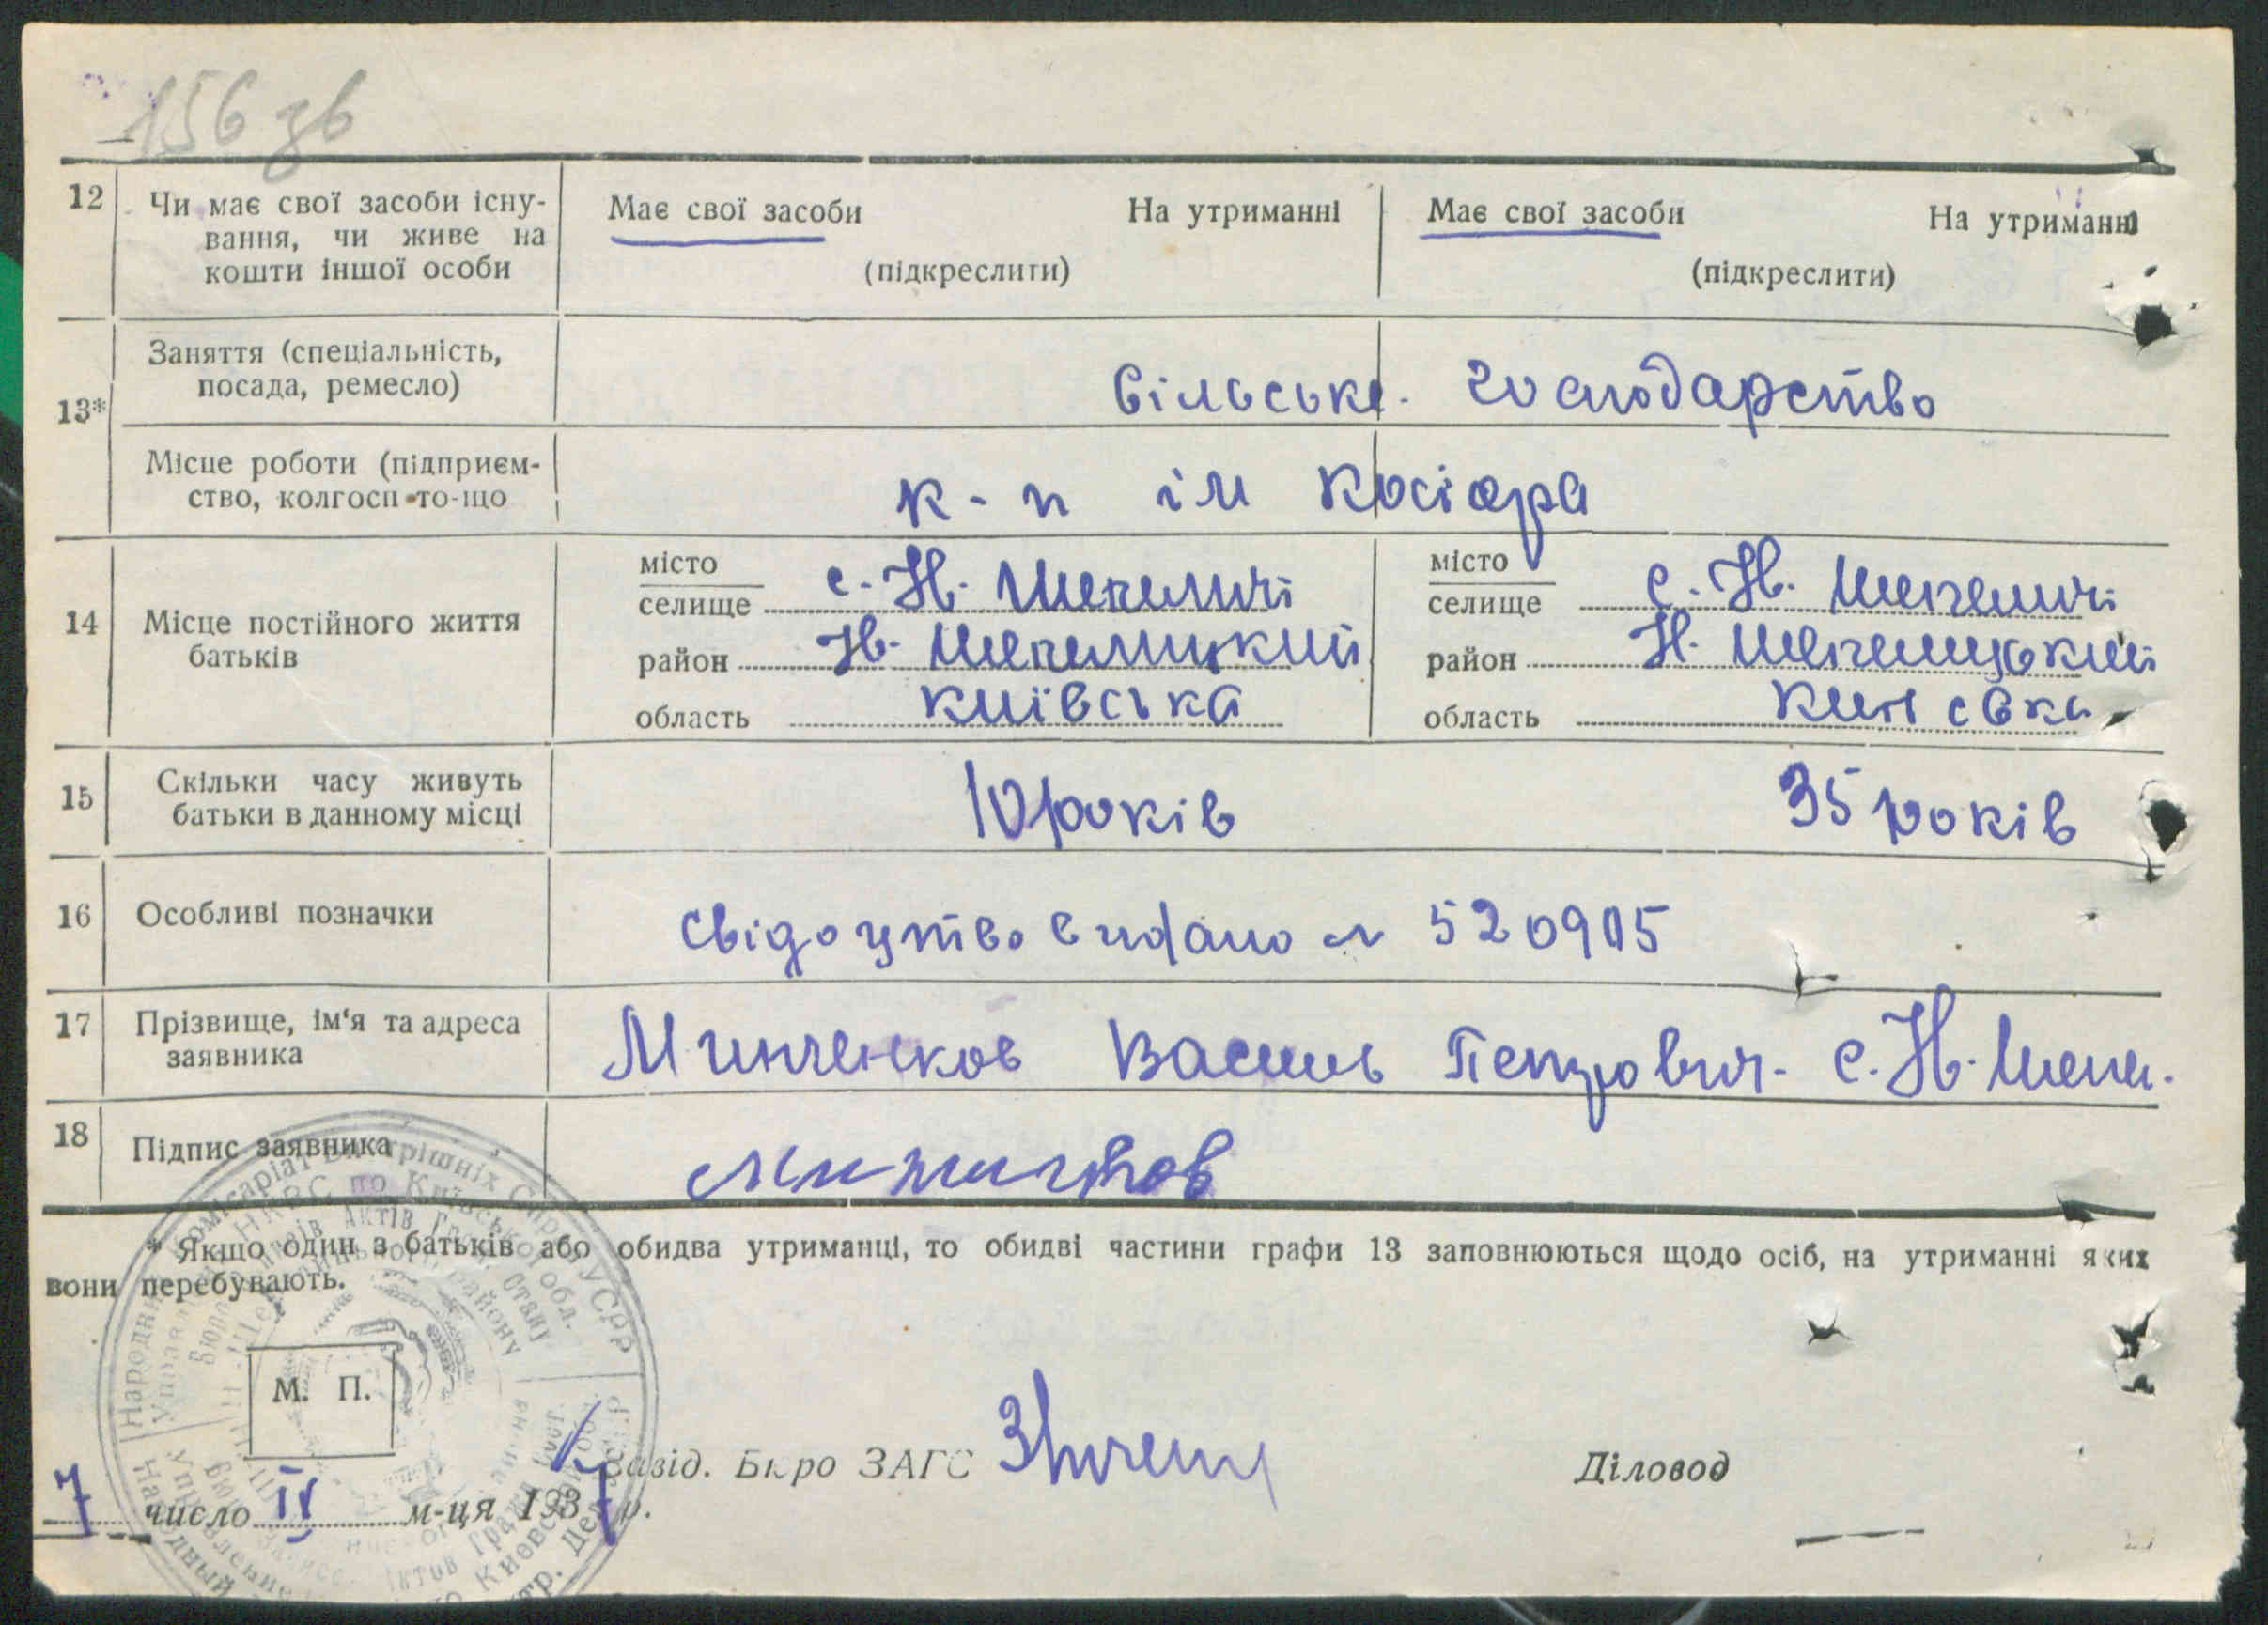 156 зв
12 Чи має свої засоби існу-
вання, чи живе на
кошти іншої особи
Має свої засоби На утриманні
(підкреслити)
Має свої засоби На утриманні
(підкреслити)
13*
Заняття (спеціальність,
посада, ремесло)
Сільське. господарство
Місце роботи (підприєм-
ство, колгосп то-що
к-п ім Косіора
14 Місце постійного життя
батьків
місто
селище с. Н. Шепеличі
район Н. Шепелицкий
область київська
місто
селище с. Н. Шепеличі
район Н. Шепелицький
область
15 Скільки часу живуть
батьки в данному місці
10 років 35 років
16 Особливі позначки
свідоцтво видано № 520905
17 Прізвище, ім‘я та адреса
заявника
Минченков Василь Петрович. с. Н. Шепел.
18 Підпис заявника
* Якщо один з батьків або обидва утриманці, то обидві частини графи 13 заповнюються щодо осіб, на утриманні яких
вони перебувають.
М. П.
Завід. Бюро ЗАГС
Діловод
7 число IV м-ця 1937 р.